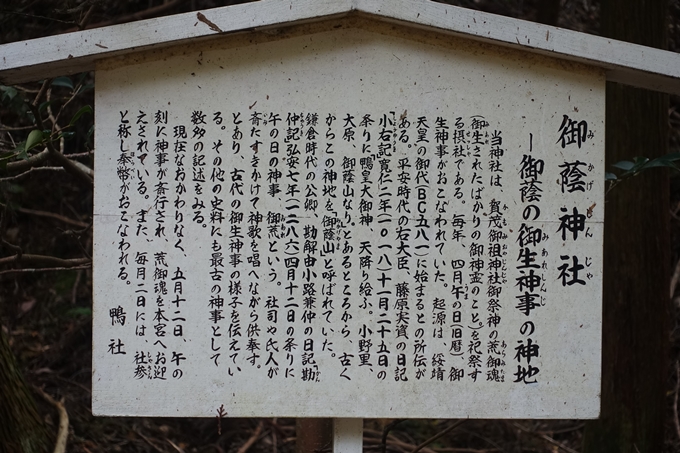 御蔭神社
―御蔭の御生神事の神地
当神社は、賀茂御祖神社御祭神の荒御魂
(御生されたばかりの御神霊のこと。)を祀祭す
る摂社である。毎年、四月午の日(旧暦)、御
生神事がおこなわれていた。起源は、綏靖
天皇の御代(BC五八一)に始まるとの所伝が
ある。平安時代の右大臣、藤原実資の日記
小右記寛仁二年(一〇一八)十一月二十五日の
条りに鴨皇大御神、天降り給ふ。小野里、
大原、御蔭山なり。とあるところから、古く
からこの神地を御蔭山と呼ばれていた。
鎌倉時代の公卿、勘解由小路兼仲の日記勘
仲記弘安七年(一二八六)四月十二日の条りに
午の日の神事、御荒という。社司や氏人が
斎たすきかけて神歌を唱へながら供奉す。
とあり、古代の御生神事の様子を伝えてい
る。その他の史料にも最古の神事として
数多の記述をみる。
現在なおかわりなく、五月十二日、午の
刻に神事が斎行され、荒御魂を本宮へお迎
えされている。また、毎月二日には、社参
と称し奉幣がおこなわれる。
鴨社